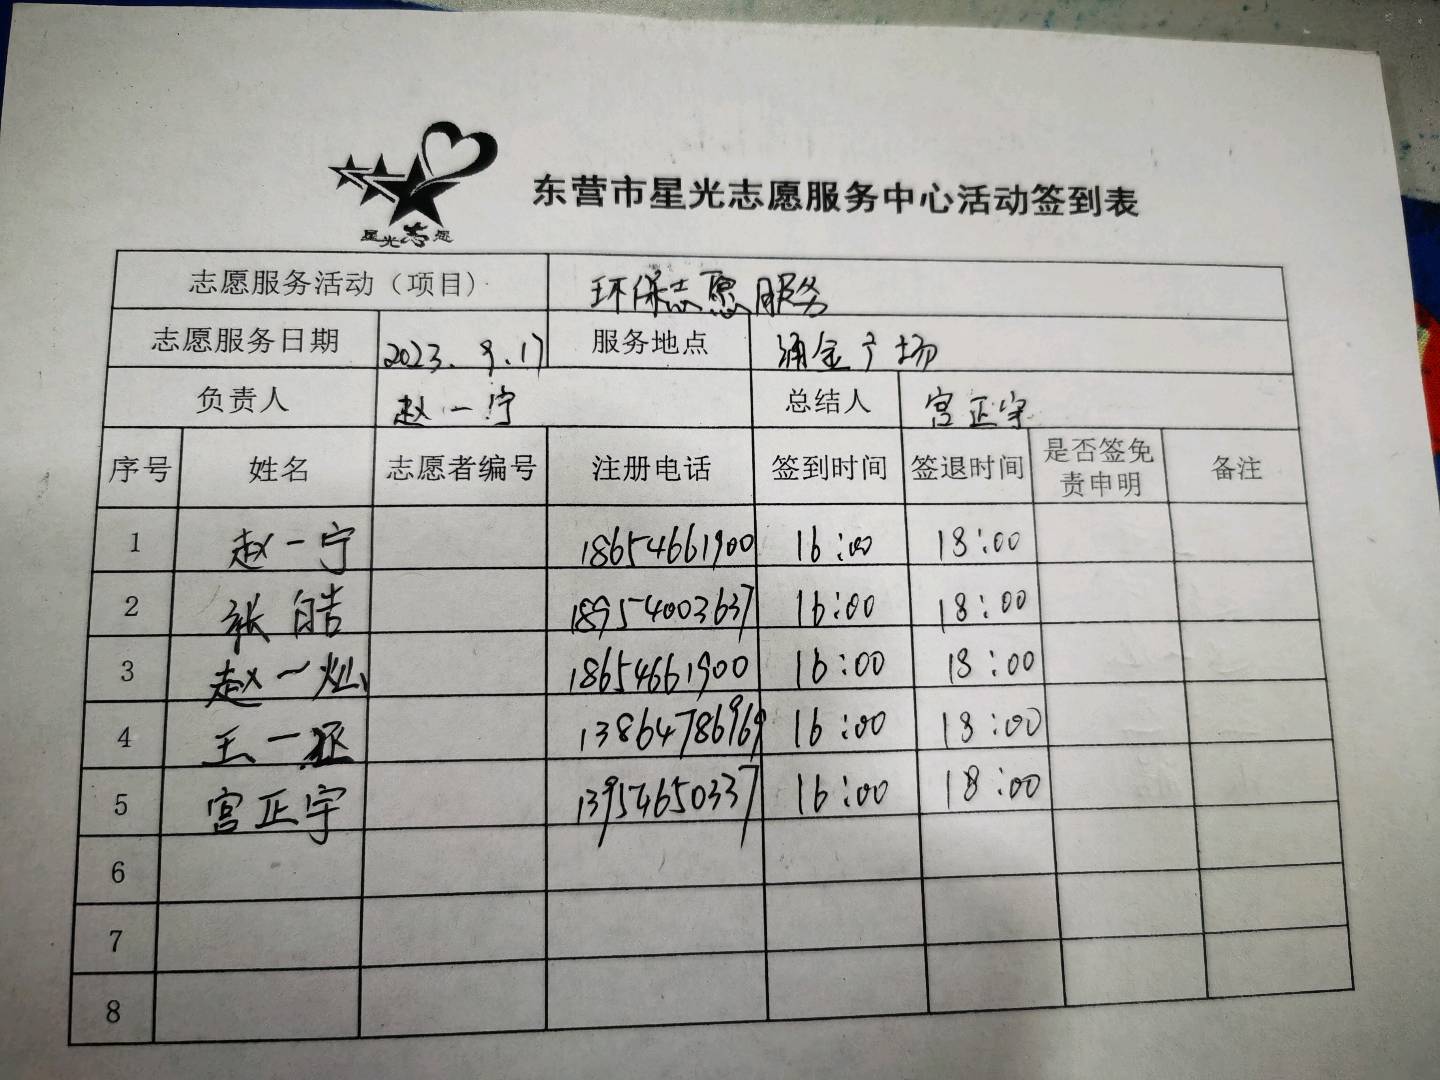 星光志愿
东营市星光志愿服务中心活动签到表
志愿服务活动（项目） 环保志愿服务
志愿服务日期 2023.9.17 服务地点 涌金广场
负责人 赵一宁 总结人 宫正宇
序号 姓名 志愿者编号 注册电话 签到时间 签退时间 是否签免责申明 备注
1 赵一宁 18654661900 16:00 18:00
2 张皓 18954003637 16:00 18:00
3 赵一灿 18654661900 16:00 18:00
4 王一 13864786969 16:00 18:00
5 宫正宇 13954650337 16:00 18:00
6
7
8